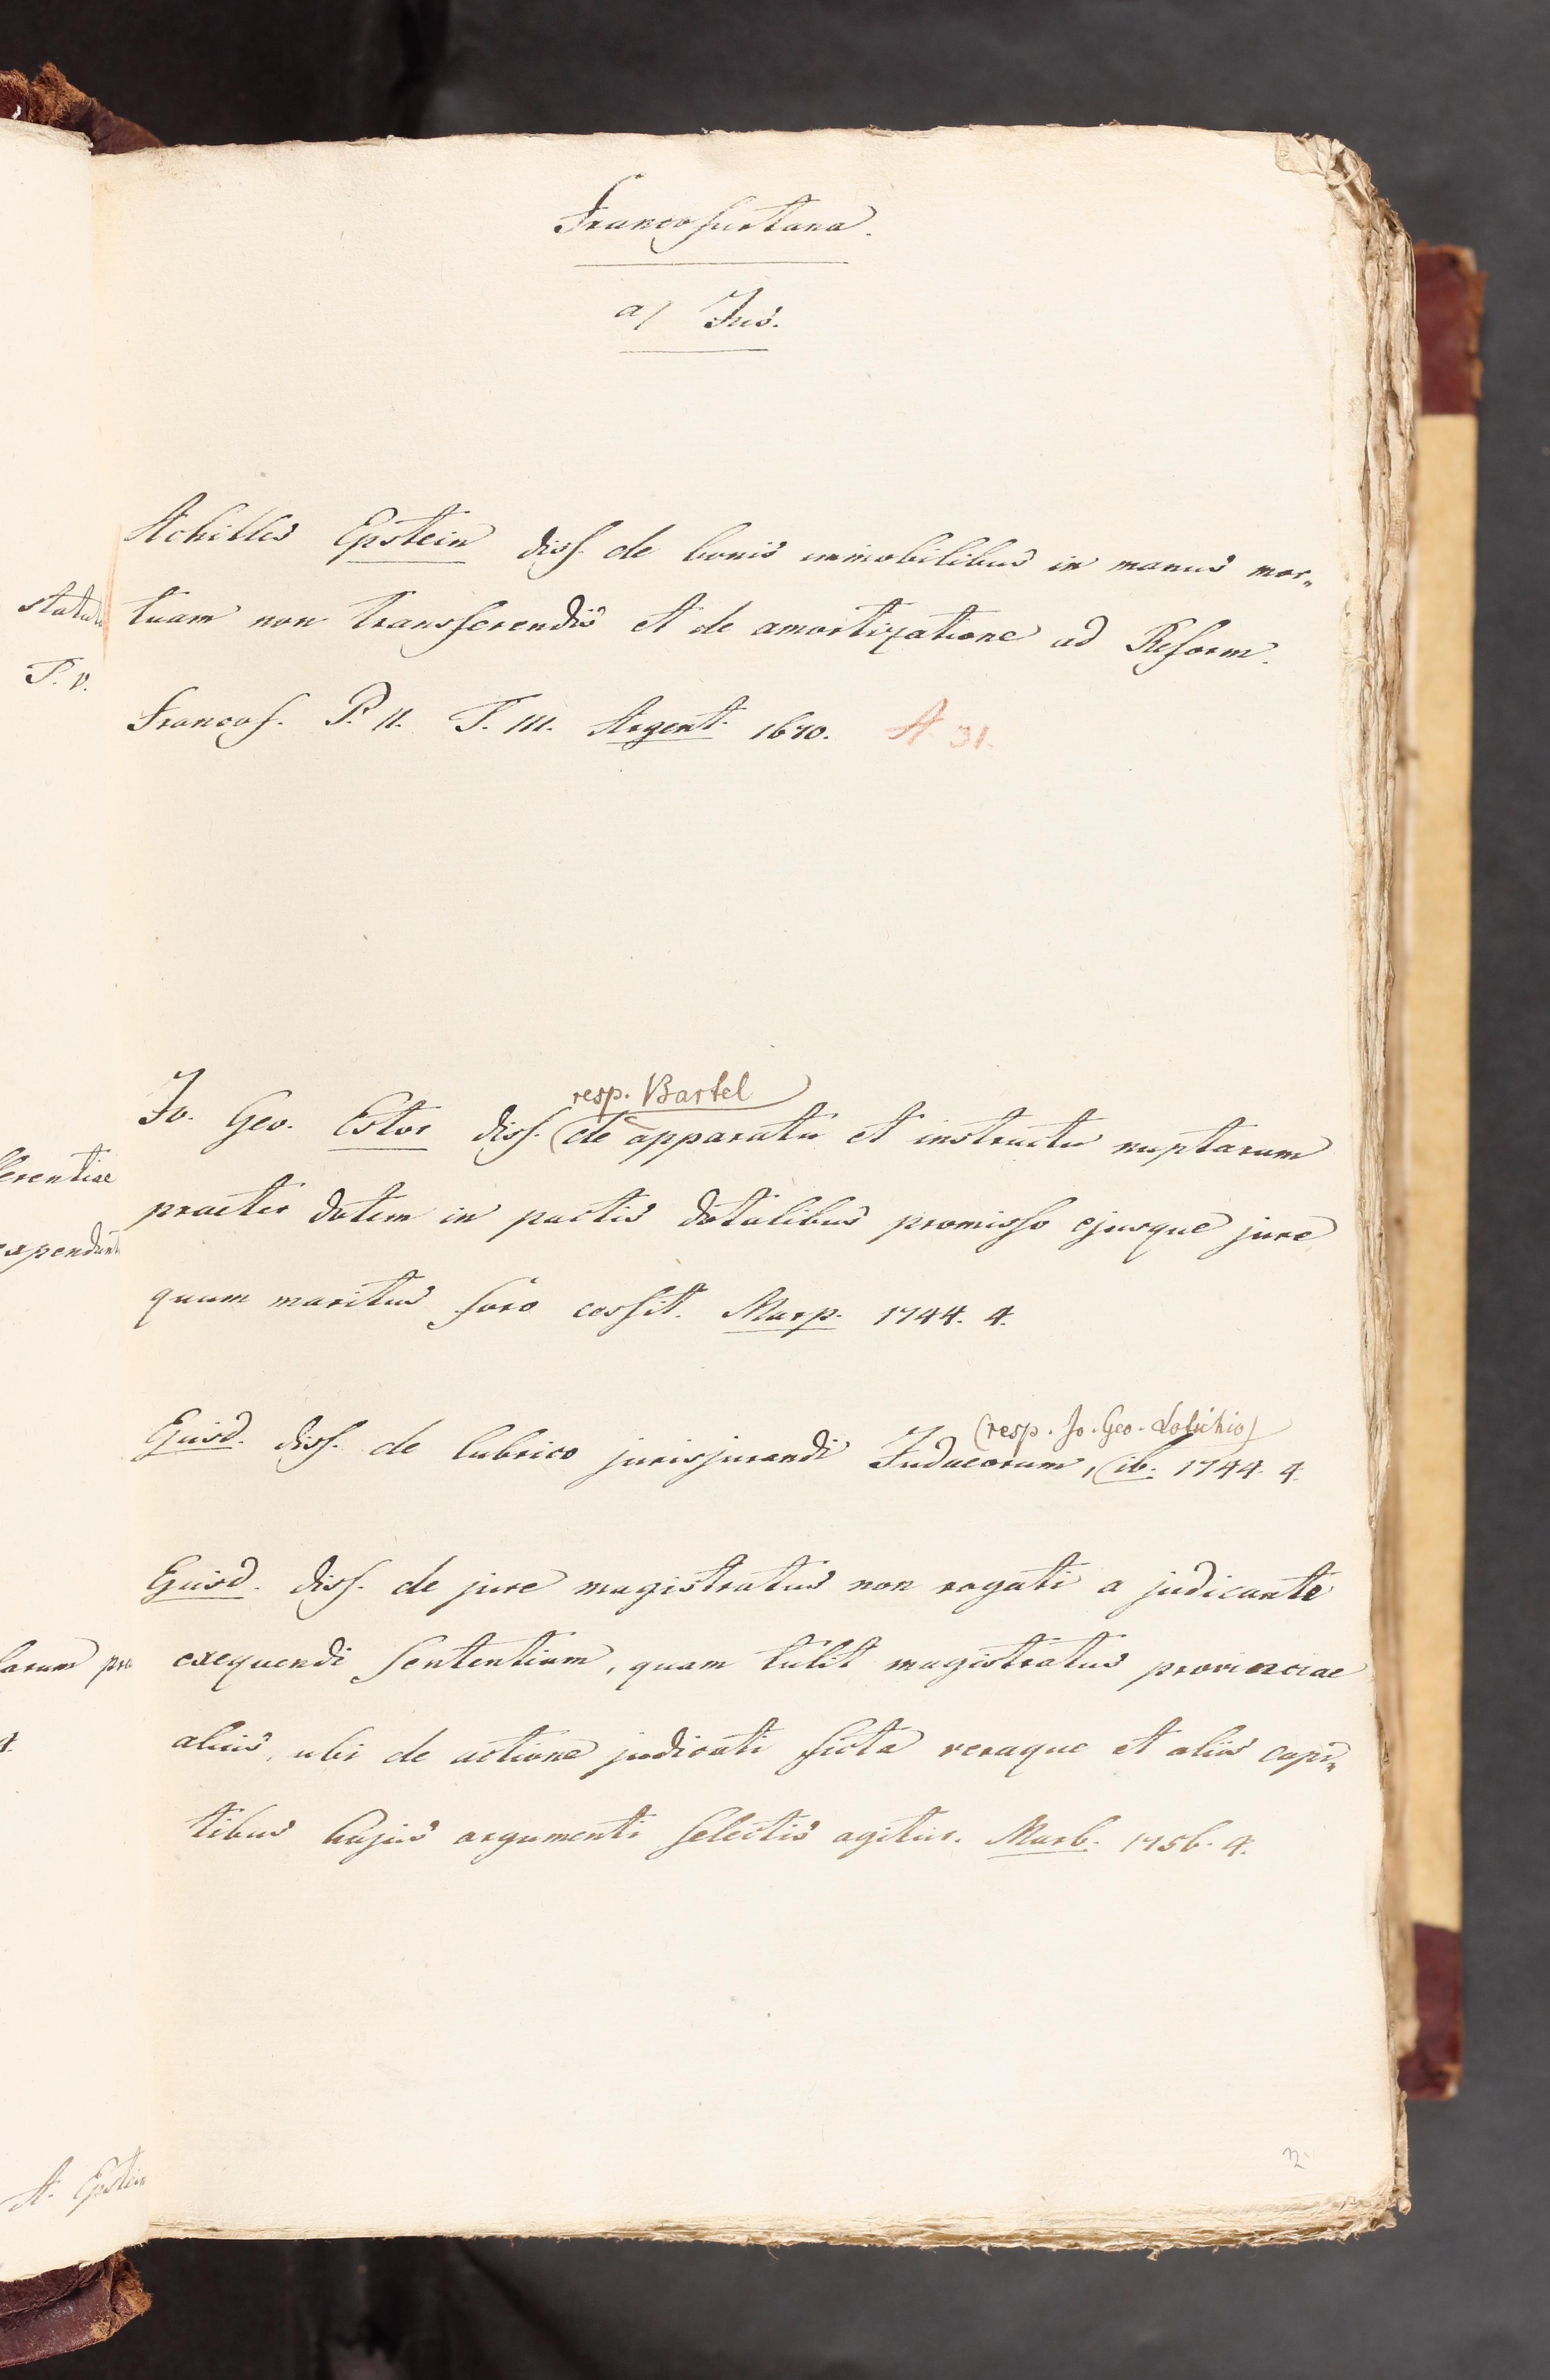 Francofurtana.
a) Jus.
Achilles Epstein diss. de bonis immobilibus in manus mor„
tuam non transferendis et de amortizatione ad Reform.
Francof. P. II. T. III. Argent. 1670. A 31.
resp. Bartel
Jo. Geo. Estor diss. de apparatu et instructu nuptarum
praeter dotem in pactis dotalibus promisso ejusque jure
quum maritus foro cessit. Marp. 1744. 4.
(resp. Jo. Geo. Lotichio)
Ejusd. diss. de lubrico jurisjurandi Judaeorum, ib. 1744. 4.
Ejusd. diss. de jure magistratus non rogati a judicante
exequendi sententiam, quam tulit magistratus provinciae
alius, ubi de actione judicati ficta veraque et aliis capi„
tibus hujus argumenti selectis agitur. Marb. 1756. 4.
T. V.
expendunt
4.
A. Epstein
2